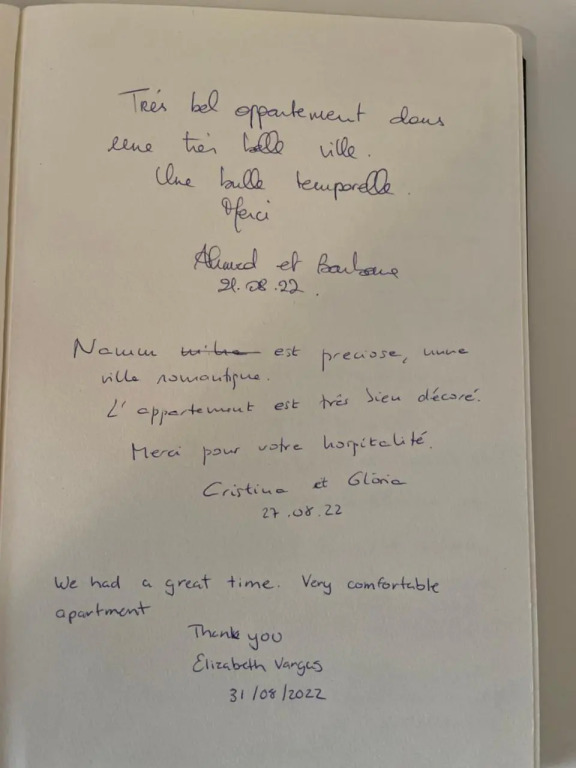 Trés bel appartement dans
une très belle ville.
Une bulle temporelle.
Merci
Ahmed et Barbara
21.08.22.
Namur est preciose, unne
ville romantique.
L'appartement est très bien décoré.
Merci pour votre hospitalité.
Cristina et Glòria
27.08.22
We had a great time. Very comfortable
apartment
Thank you
Elizabeth Vargas
31/08/2022